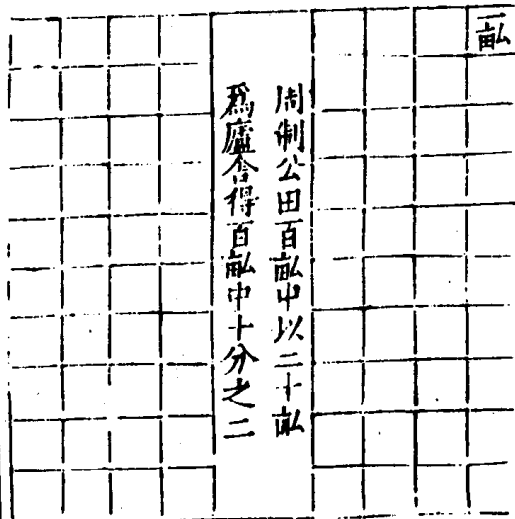 一畝
周制公田百畝中以二十畝
爲廬舎得百畝中十分之二